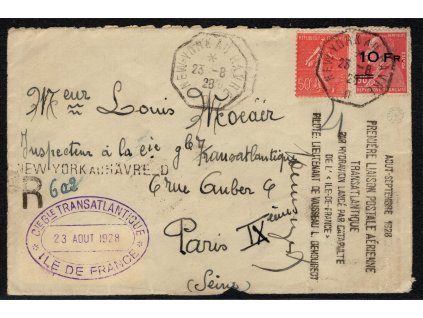 NEW-YORK AU HAVRE
23-8
28
50c
10 Fr.
NEW-YORK AU HAVRE
23-8
28
Mr eur Louis
Inspecteur à la Cie gle Transatlantique
NEW YORK AU HAVRE. D
R 602
6 rue Auber 6
Paris IX
(Seine)
CIE GLE TRANSATLANTIQUE
23 AOUT 1928
ILE DE FRANCE
AOUT-SEPTEMBRE 1928
PREMIÈRE LIAISON POSTALE AÉRIENNE
TRANSATLANTIQUE
PAR HYDRAVION LANCÉ PAR CATAPULTE
DE L'"ILE-DE-FRANCE"
PILOTE: LIEUTENANT DE VAISSEAU L. DEMOUGEOT